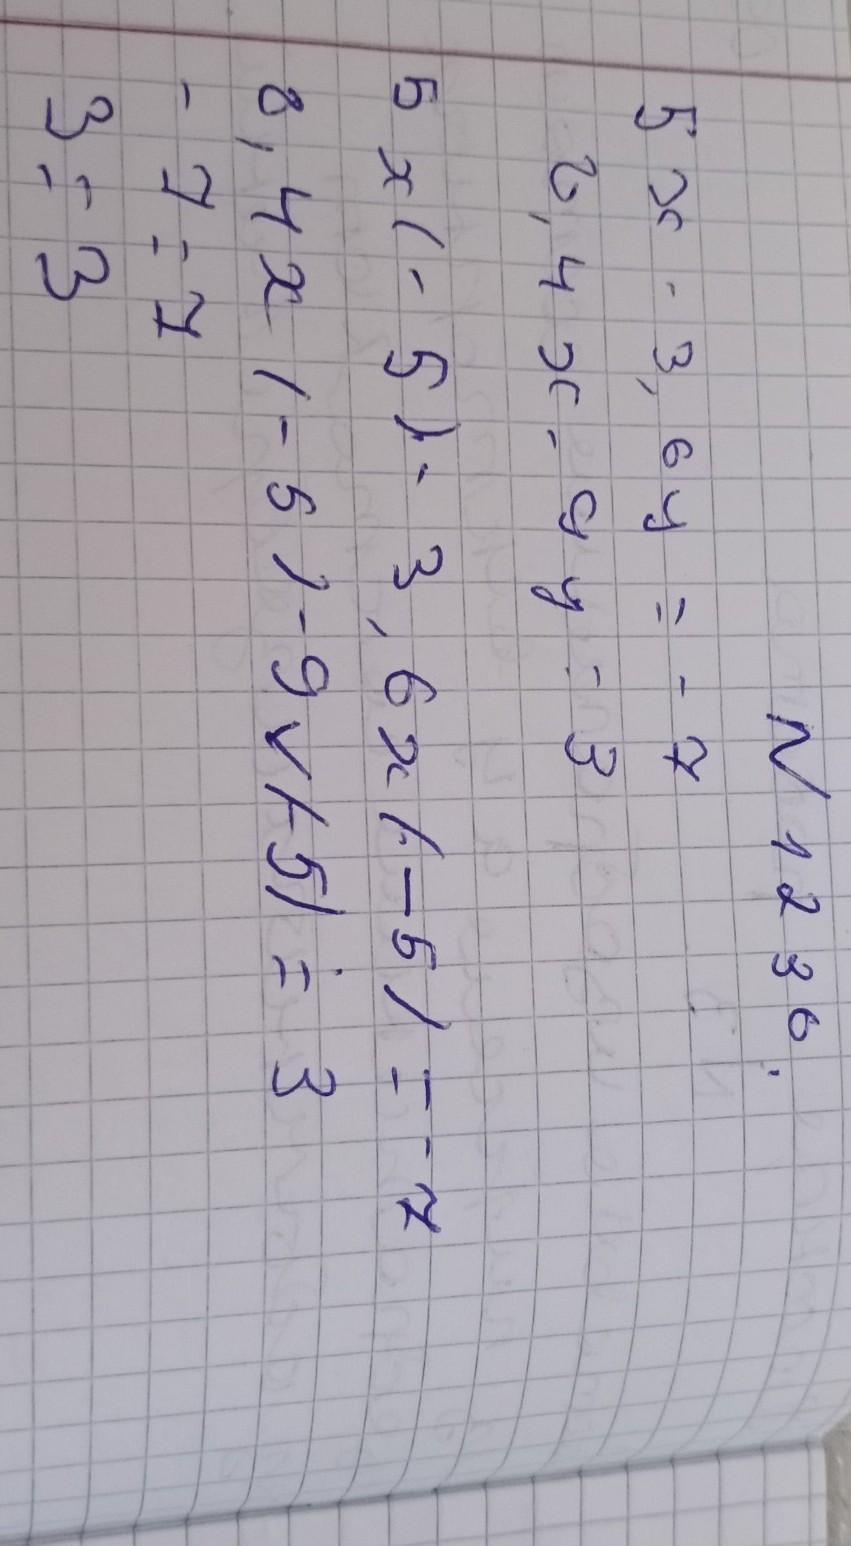 N 1236.
5x - 3,6y = -7
8,4x - 9y = 3
5 x (-5) - 3,6 x (-5) = -7
8,4 x (-5) - 9 x (-5) = 3
-7 = 7
3 = 3